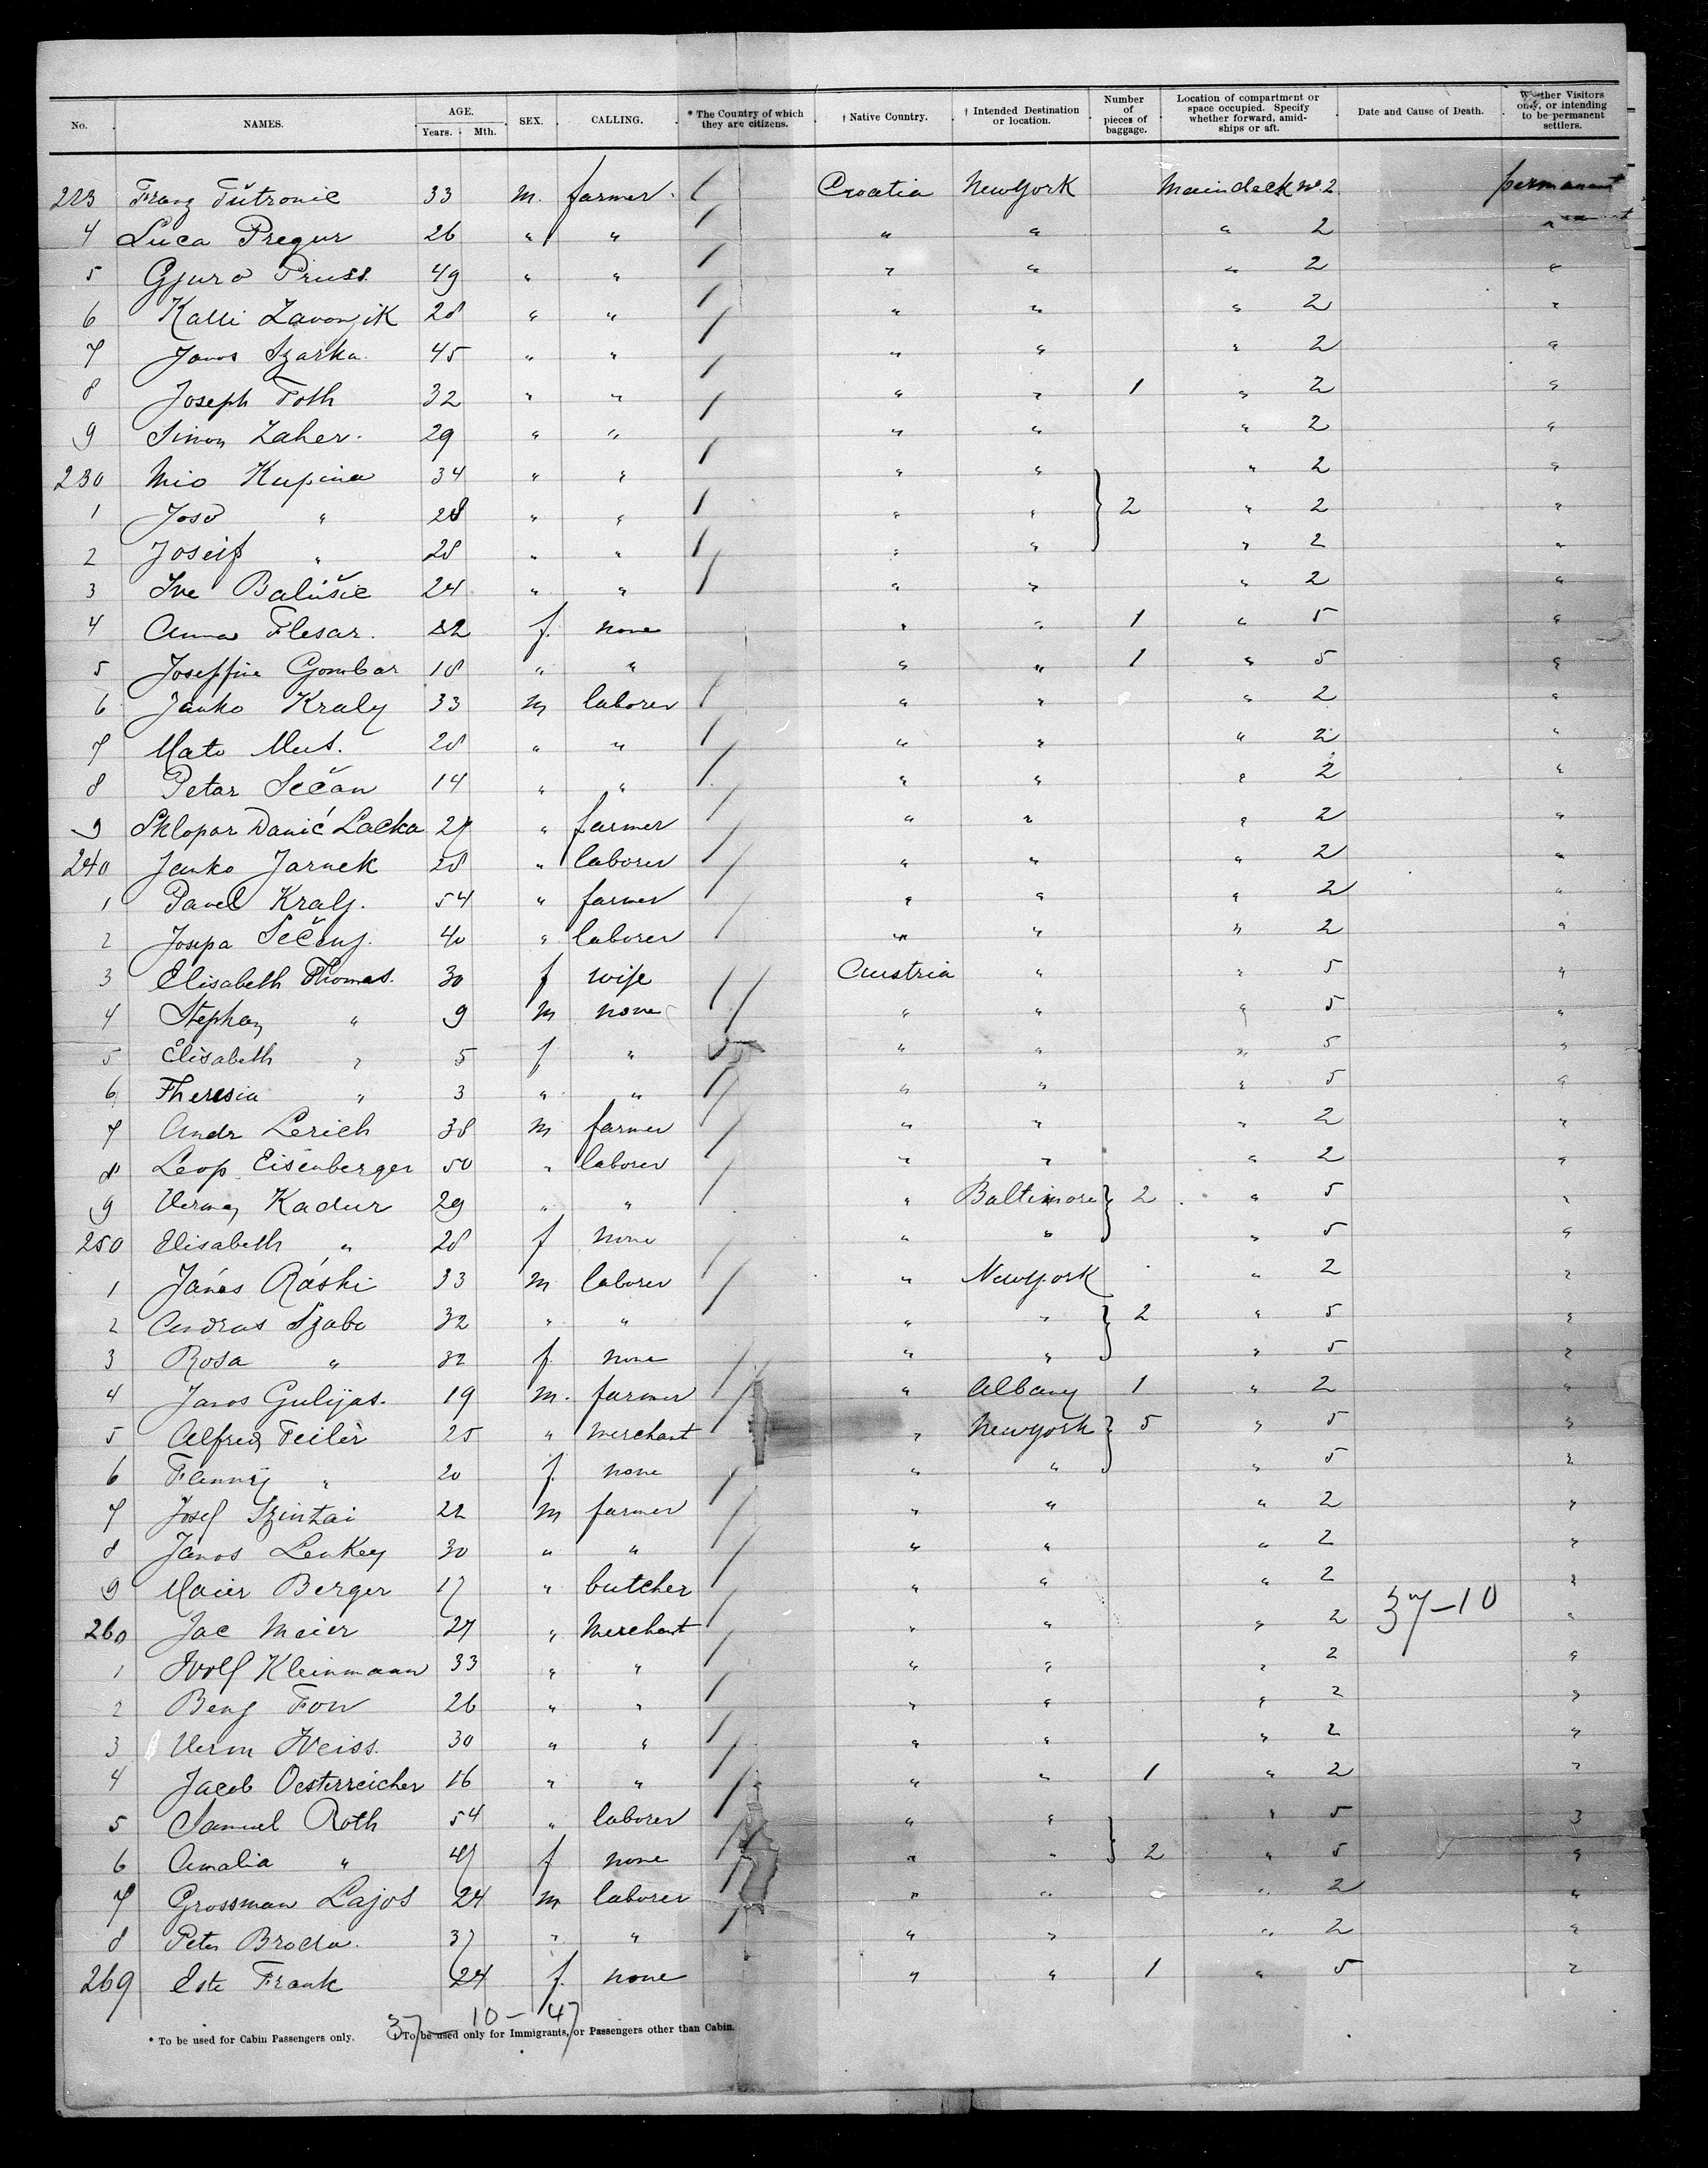 No. NAMES. AGE. Years. Mth. SEX. CALLING. * The Country of which they are citizens. † Native Country. † Intended Destination or location. Number of pieces of baggage. Location of compartment or space occupied. Specify whether forward, amidships or aft. Date and Cause of Death. Whether Visitors only, or intending to be permanent settlers.
223 Franz 33 m. farmer / Croatia New York Maindeck No. 2 permanent
4 Luca Pregur 26 " " / " " " 2 "
5 Gjuro Pruss. 49 " " / " " " 2 "
6 Kalli 28 " " / " " " 2 "
7 Janos Szarka 45 " " / " " " 2 "
8 Joseph Toth 32 " " / " " 1 " 2 "
9 Simon Zaher. 29 " " / " " " 2 "
230 Mio Kupina 34 " " / " " " 2 "
1 Joso " 28 " " / " " } 2 " 2 "
2 Joseif " 28 " " / " " " 2 "
3 Ive Balušic 24 " " / " " " 2 "
4 Anna Flesar. 22 f. none " " 1 " 5 "
5 Joseffine Gombar 18 " " " " 1 " 5 "
6 Janko Kraly 33 m laborer / " " " 2 "
7 Mato Mut. 28 " " / " " " 2 "
8 Petar Sečan 14 " " / " " " 2 "
9 Sklopar Danić Lacka 27 " farmer / " " " 2 "
240 Janko Jarnek 28 " laborer / " " " 2 "
1 Pavel Kralj. 54 " farmer / " " " 2 "
2 Josepa 40 " laborer / " " " 2 "
3 Elisabeth Thomas. 30 f wife / Austria " " 5 "
4 Stephan " 9 m none / " " " 5 "
5 Elisabeth " 5 f " " " " 5 "
6 Theresia " 3 " " / " " " 5 "
7 Andr Lerich 38 m farmer / " " " 2 "
8 Leop. Eisenberger 50 " laborer / " " " 2 "
9 Kadur 29 " " / " Baltimore } 2 " 5 "
250 Elisabeth " 28 f none / " " " 5 "
1 János Ráski 33 m laborer / " New York " 2 "
2 Andras Szabo 32 " " / " " } 2 " 5 "
3 Rosa " 32 f. none / " " " 5 "
4 Janos Gulijas. 19 m. farmer / " Albany 1 " 2 "
5 Alfred Feiler 25 " merchant " New York } 5 " 5 "
6 Fanny " 20 f. none / " " " 5 "
7 Josef Szintai 22 m farmer / " " " 2 "
8 Janos Lenkey 30 " " / " " " 2 "
9 Maier Berger 17 " butcher / " " " 2 "
260 Jac Meier 27 " Merchant / " " " 2 37-10 "
1 Wolf Kleinmann 33 " " / " " " 2 "
2 Benj 26 " " / " " " 2 "
3 Weiss. 30 " " / " " " 2 "
4 Jacob Oesterreicher 16 " " / " " 1 " 2 "
5 Samuel Roth 54 " laborer / " " " 5 "
6 Amalia " 47 f none / " " } 2 " 5 "
7 Grossman Lajos 24 m laborer / " " " 2 "
8 Peter Broda. 37 " " / " " " 2 "
269 Frank 24 f. none " " 1 " 5 "
37-10-47
* To be used for Cabin Passengers only. † To be used only for Immigrants, or Passengers other than Cabin.